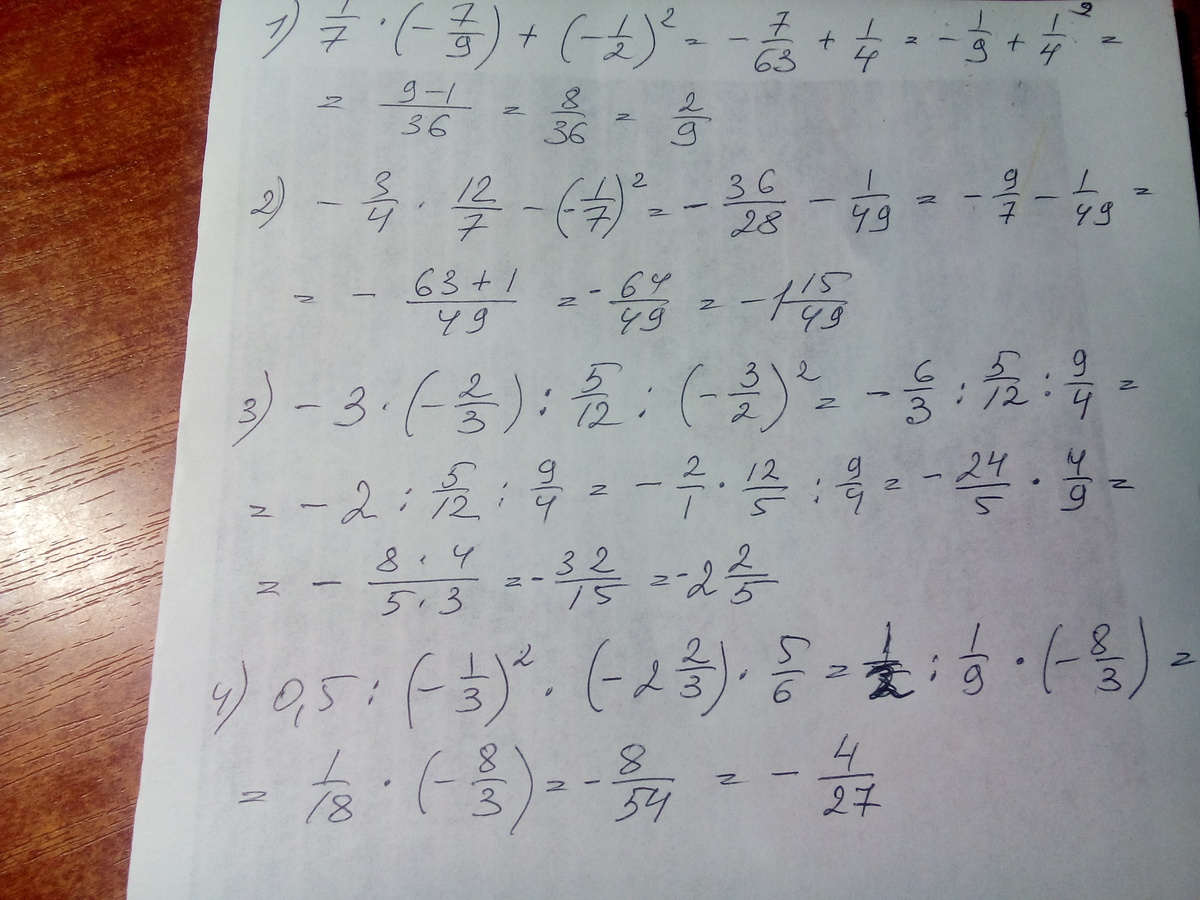 1) 1/7 · (-7/9) + (-1/2)² = -7/63 + 1/4 = -1/9 + 1/4⁹ =
= (9-1)/36 = 8/36 = 2/9
2) -3/4 · 12/7 - (-1/7)² = -36/28 - 1/49 = -9/7 - 1/49 =
= -(63+1)/49 = -64/49 = -1 15/49
3) -3 · (-2/3) : 5/12 : (-3/2)² = -6/3 : 5/12 : 9/4 =
= -2 : 5/12 : 9/4 = -2/1 · 12/5 : 9/4 = -24/5 · 4/9 =
= -(8·4)/(5·3) = -32/15 = -2 2/5
4) 0,5 : (-1/3)² · (-2 2/3) · 5/6 = 1/2 : 1/9 · (-8/3) =
= 1/18 · (-8/3) = -8/54 = -4/27